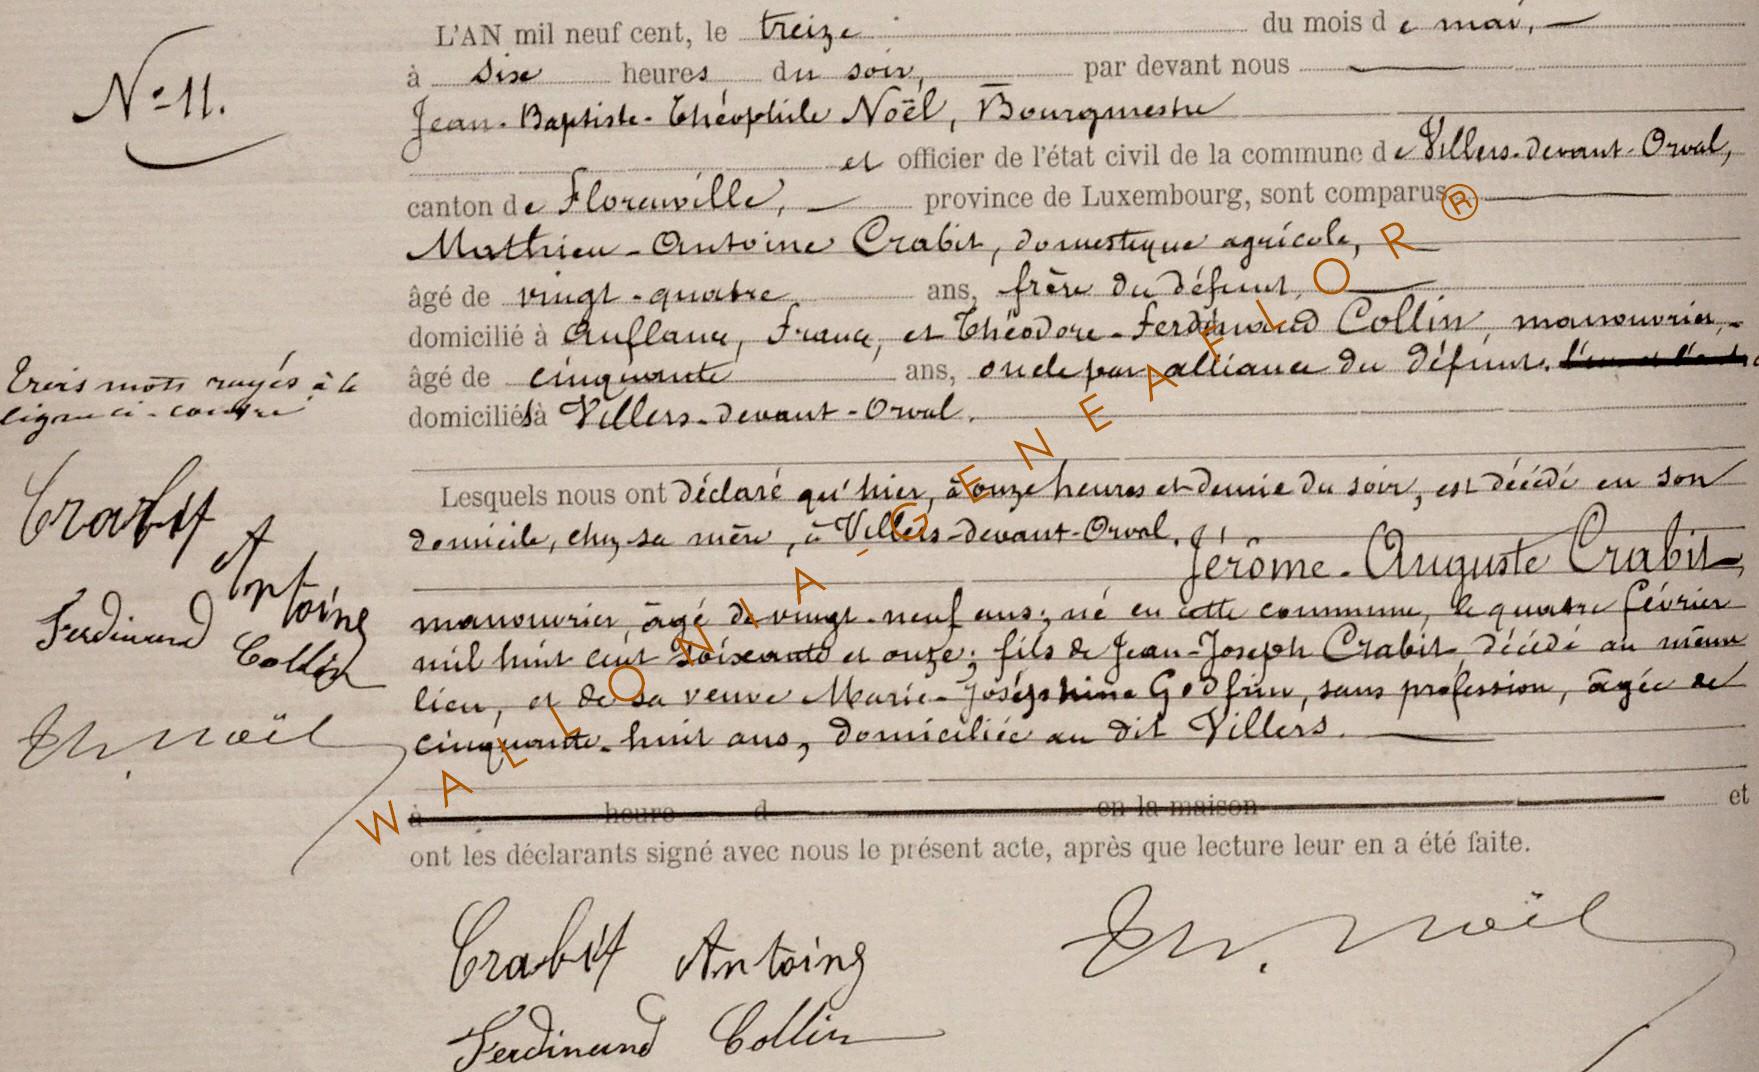 N° 11.
L'AN mil neuf cent, le treize du mois de mai,
à six heures du soir, par devant nous
Jean-Baptiste-Théophile Noël, Bourgmestre
et officier de l'état civil de la commune de Villers-devant-Orval,
canton de Florenville, province de Luxembourg, sont comparus
Mathieu-Antoine Crabit, domestique agricole,
âgé de vingt-quatre ans, frère du défunt,
domicilié à Auflance, France, et Théodore-Ferdinand Collin, manouvrier,
âgé de cinquante ans, oncle par alliance du défunt,
domiciliés à Villers-devant-Orval.
Trois mots rayés à la
ligne ci-contre
Crabit
Antoine
Ferdinand
Collin
Th. Noël
Lesquels nous ont déclaré qu'hier, à onze heures et demie du soir, est décédé en son
domicile, chez sa mère, à Villers-devant-Orval, Jérôme-Auguste Crabit,
manouvrier, âgé de vingt-neuf ans; né en cette commune, le quatre février
mil huit cent soixante et onze; fils de Jean-Joseph Crabit décédé au même
lieu, et de sa veuve Marie-Joséphine Godfrin, sans profession, âgée de
cinquante-huit ans, domiciliée au dit Villers.
à heure d en la maison et
ont les déclarants signé avec nous le présent acte, après que lecture leur en a été faite.
Crabit Antoine
Th. Noël
Ferdinand Collin
WALLONIA-GENEAFLOR®